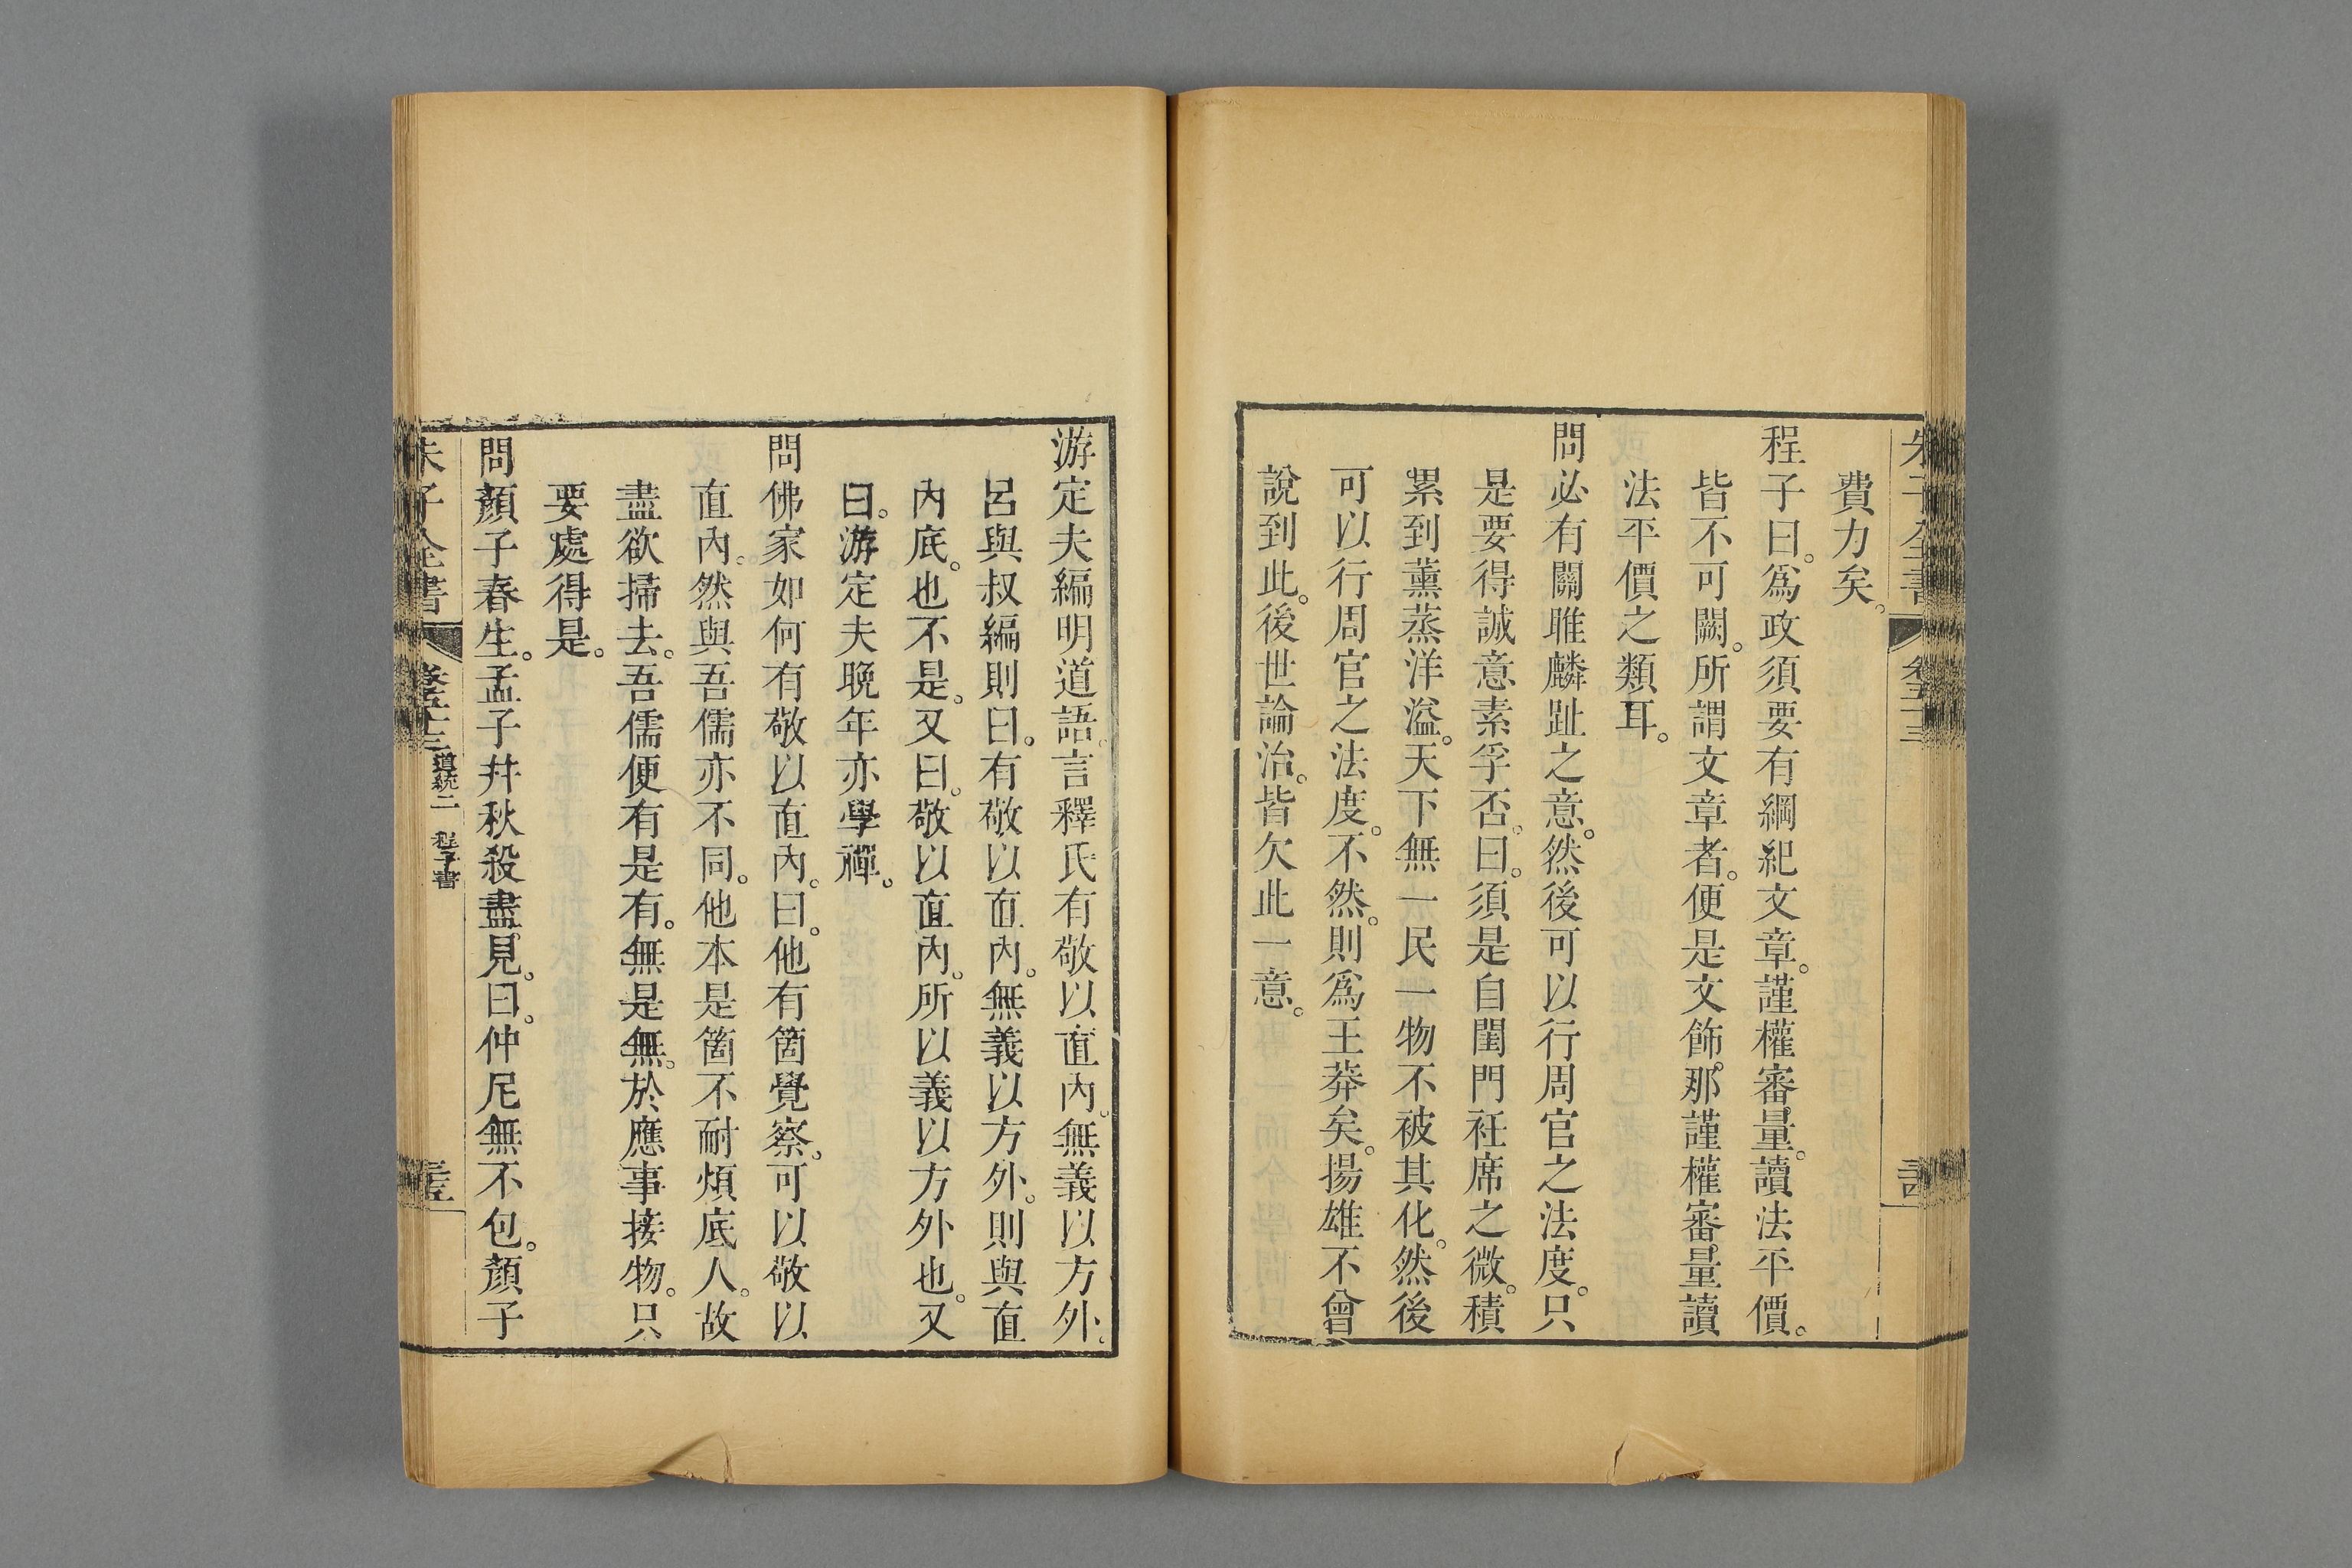 朱子全書 卷五十三
費力矣。
程子曰。爲政須要有綱紀文章。謹權審量。讀法平價。
皆不可闕。所謂文章者。便是文飾。那謹權審量讀
法平價之類耳。
問必有關雎麟趾之意。然後可以行周官之法度。只
是要得誠意素孚否。曰。須是自閨門衽席之微。積
累到薰蒸洋溢。天下無一民一物不被其化。然後
可以行周官之法度。不然。則爲王莽矣。揚雄不曾
說到此。後世論治。皆欠此一意。
游定夫編明道語。言釋氏有敬以直內。無義以方外。
呂與叔編則曰。有敬以直內。無義以方外。則與直
內底。也不是。又曰。敬以直內。所以義以方外也。又
曰。游定夫晚年亦學禪。
問佛家如何有敬以直內。曰。他有箇覺察。可以敬以
直內。然與吾儒亦不同。他本是箇不耐煩底人。故
盡欲掃去。吾儒便有是有。無是無。於應事接物。只
要處得是。
問顏子春生。孟子幷秋殺盡見。曰。仲尼無不包。顏子
朱子全書 卷五十三 道統二 程子書